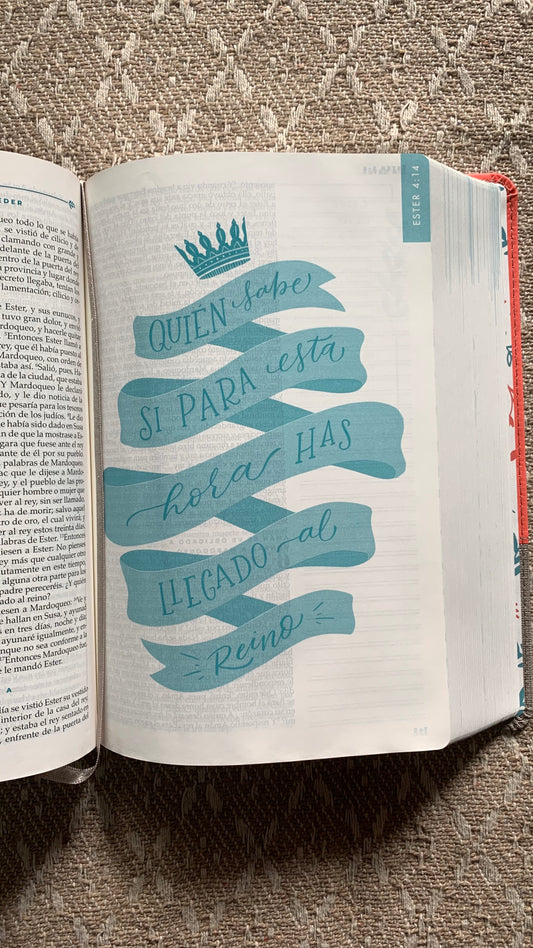 EDER
ueo todo lo que se había
se vistió de cilicio y de
clamando con grande y
delante de la puerta del
entro de la puerta del rey
provincia y lugar donde
ecreto llegaba, tenían los
lamentación; cilicio y ce-
e Ester, y sus eunucos, y
tuvo gran dolor, y envió
ardoqueo, y hacerle quitar
Entonces Ester llamó a
rey, que él había puesto al
Mardoqueo, con orden de
taba así. Salió, pues, Ha-
a de la ciudad, que estaba
Y Mardoqueo le declaró
y le dio noticia de la
que pesaría para los tesoros
ción de los judíos. Le dio
e había sido dado en Susa
n de que la mostrase a Es-
gara que fuese ante el rey
de él por su pueblo.
palabras de Mardoqueo.
ac que le dijese a Mardo-
ey, y el pueblo de las pro-
quier hombre o mujer que
ver al rey, sin ser llamado,
ha de morir; salvo aquel
tro de oro, el cual vivirá; y
r al rey estos treinta días.
labras de Ester. Entonces
diesen a Ester: No pienses
rey más que cualquier otro
utamente en este tiempo,
alguna otra parte para los
padre pereceréis. ¿Y quién
ado al reino?
diesen a Mardoqueo: Ve y
hallan en Susa, y ayunad
en tres días, noche y día;
ayunaré igualmente, y en-
nque no sea conforme a la
Entonces Mardoqueo fue,
le mandó Ester.
A
día se vistió Ester su vestido
interior de la casa del rey,
; y estaba el rey sentado en
enfrente de la puerta del
ESTER 4:14
QUIÉN sabe
SI PARA esta
hora HAS
LLEGADO al
Reino